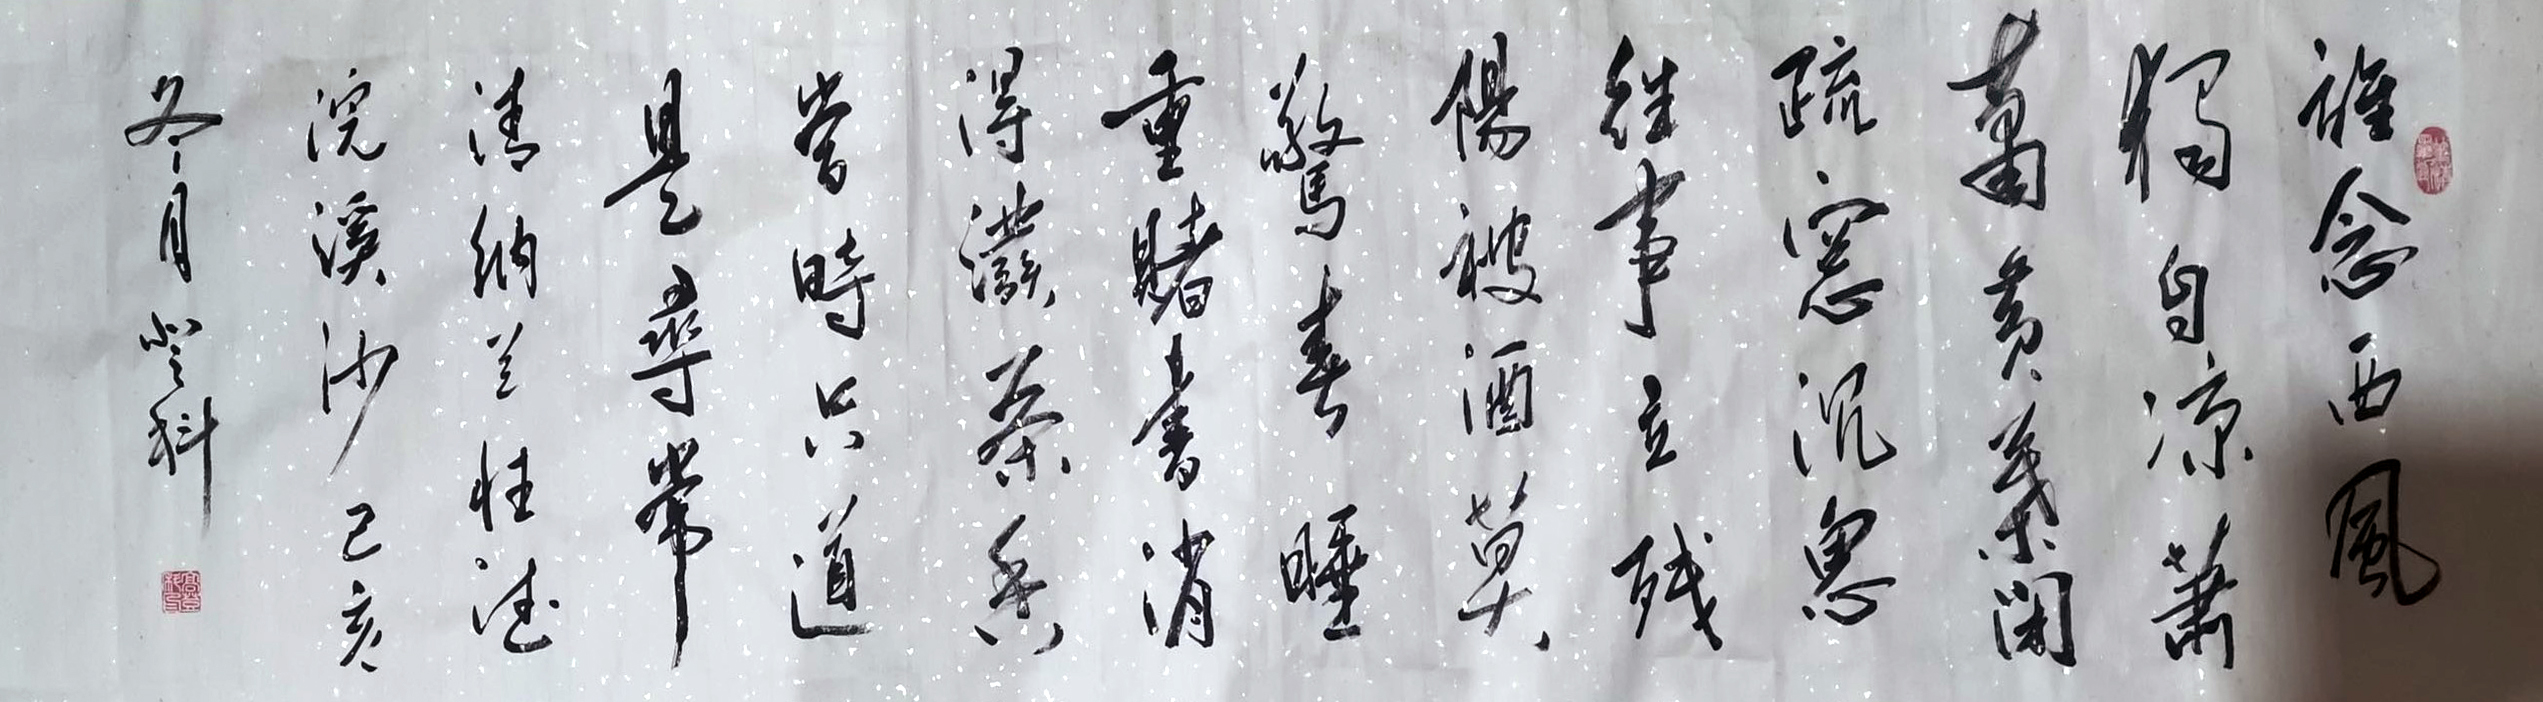 誰念西風
獨自凉蕭
蕭黄葉閉
疏窓沉思
往事立残
陽被酒莫
驚春睡
重賭書消
得潑茶香
當時只道
是尋常
清納兰性德
浣溪沙己亥
冬月登科